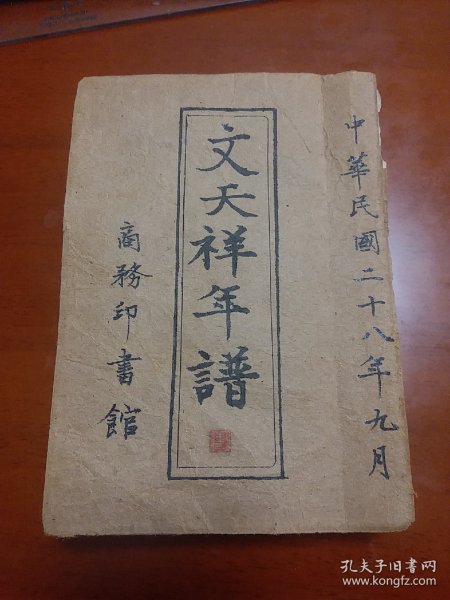 中華民國二十八年九月
文天祥年譜
商務印書館
孔夫子旧书网
www.kongfz.com